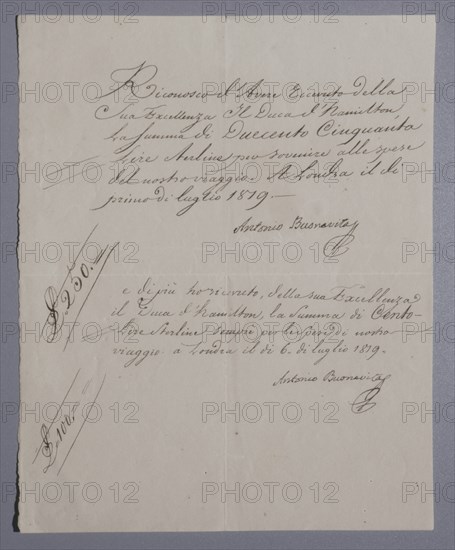 Riconosco d'Avere Ricevuto della
Sua Excellenza Il Duca d'Hamilton
La Summa di Duecento Cinquanta
Lire Sterline per sovenire alle spese
del nostro viaggio. A Londra il di
primo di luglio 1819.—
Antonio Buonavita
£. 250.
e di più ho ricevuto, della sua Excellenza
il Duca d'Hamilton, la Summa di Cento
Lire Sterline sempre per le spese di nostro
viaggio. a Londra il di 6. di luglio 1819.
Antonio Buonavita
£ 100.
PHOTO 12